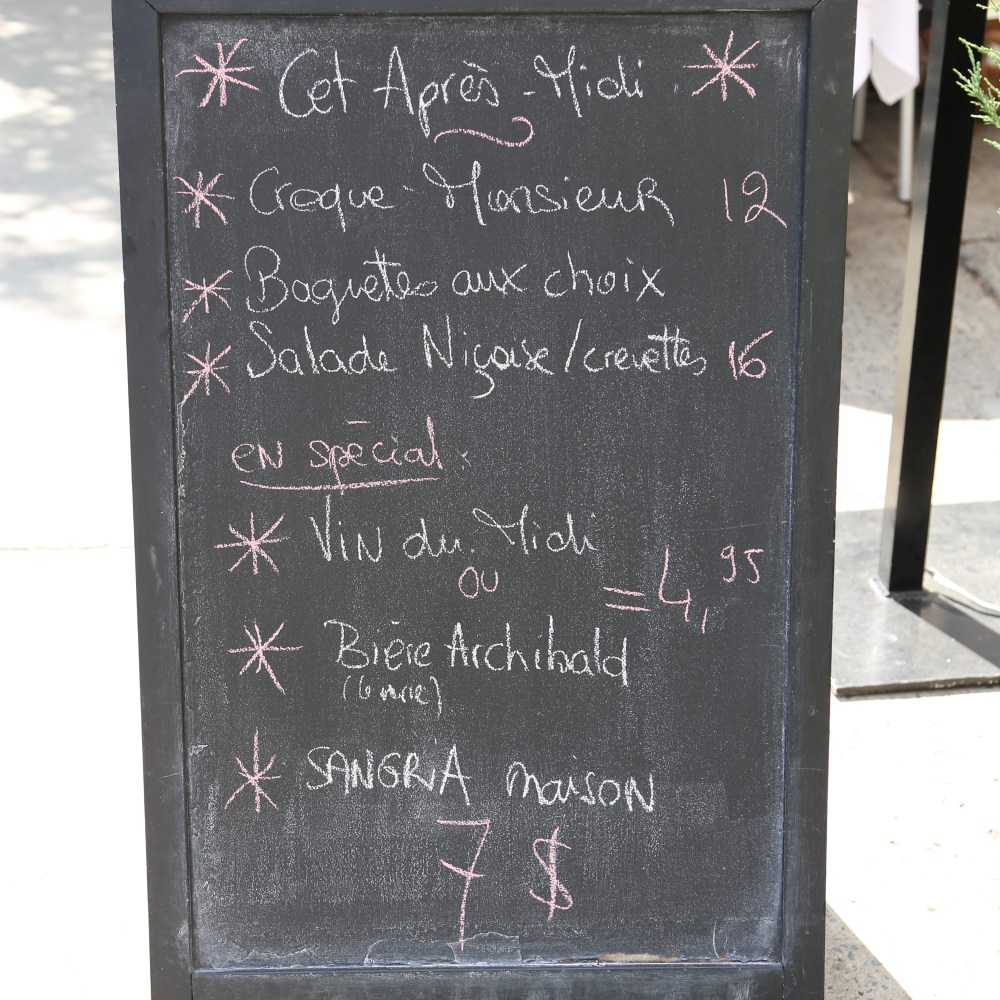 Cet Après-Midi
Croque-Monsieur 12
Baguettes aux choix
Salade Niçoise/crevettes 16
en spécial:
Vin du Midi
ou
= 4,95
Bière Archibald
SANGRIA maison
7 $